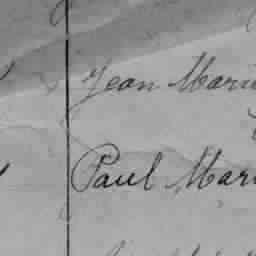 Jean Marie
Paul Mari